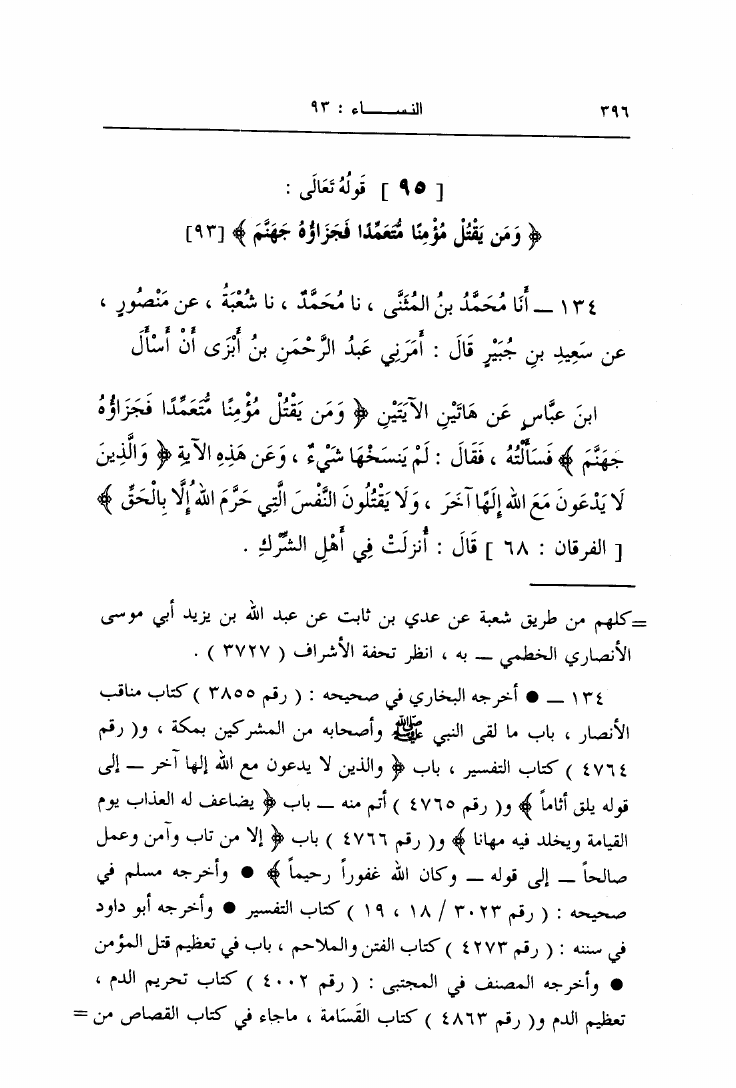 ٣٩٦ النســـاء : ٩٣
[ ٩٥ ] قَولُهُ تَعَالَى :
﴿ وَمَن يَقْتُلْ مُؤْمِنًا مُّتَعَمِّدًا فَجَزَاؤُهُ جَهَنَّمَ ﴾ [٩٣]
١٣٤ ــ أَنَا مُحَمَّدُ بنُ المُثَنَّى ، نا مُحَمَّدٌ ، نا شُعْبَةُ ، عن مَنْصُورٍ ،
عن سَعِيدِ بنِ جُبَيْرٍ قَالَ : أَمَرَنِي عَبدُ الرَّحْمَنِ بنُ أَبْزَى أَنْ أَسْأَلَ
ابنَ عبَّاسٍ عَن هَاتَيْنِ الآيَتَيْنِ ﴿ وَمَن يَقْتُلْ مُؤْمِنًا مُّتَعَمِّدًا فَجَزَاؤُهُ
جَهَنَّمَ ﴾ فَسَأَلْتُهُ ، فَقَالَ : لَمْ يَنسَخْهَا شَيْءٌ ، وَعَن هَذِهِ الآيةِ ﴿ وَالَّذِينَ
لَا يَدْعُونَ مَعَ اللهِ إِلَهًا آخَرَ ، وَلَا يَقْتُلُونَ النَّفْسَ الَّتِي حَرَّمَ اللهُ إِلَّا بِالْحَقِّ ﴾
[ الفرقان : ٦٨ ] قَالَ : أُنزلَتْ فِي أَهْلِ الشِّرْكِ .
=كلهم من طريق شعبة عن عدي بن ثابت عن عبد الله بن يزيد أبي موسى
الأنصاري الخطمي ــ به ، انظر تحفة الأشراف ( ٣٧٢٧ ) .
١٣٤ ــ ● أخرجه البخاري في صحيحه : ( رقم ٣٨٥٥ ) كتاب مناقب
الأنصار ، باب ما لقى النبي ﷺ وأصحابه من المشركين بمكة ، و( رقم
٤٧٦٤ ) كتاب التفسير ، باب ﴿ والذين لا يدعون مع الله إلها آخر ــ إلى
قوله يلق أثاماً ﴾ و( رقم ٤٧٦٥ ) أتم منه ــ باب ﴿ يضاعف له العذاب يوم
القيامة ويخلد فيه مهانا ﴾ و( رقم ٤٧٦٦ ) باب ﴿ إلا من تاب وآمن وعمل
صالحاً ــ إلى قوله ــ وكان الله غفوراً رحيماً ﴾ ● وأخرجه مسلم في
صحيحه : ( رقم ٣٠٢٣ / ١٨ ، ١٩ ) كتاب التفسير ● وأخرجه أبو داود
في سننه : ( رقم ٤٢٧٣ ) كتاب الفتن والملاحم ، باب في تعظيم قتل المؤمن
● وأخرجه المصنف في المجتبى : ( رقم ٤٠٠٢ ) كتاب تحريم الدم ،
تعظيم الدم و( رقم ٤٨٦٣ ) كتاب القَسَامة ، ماجاء في كتاب القصاص من =